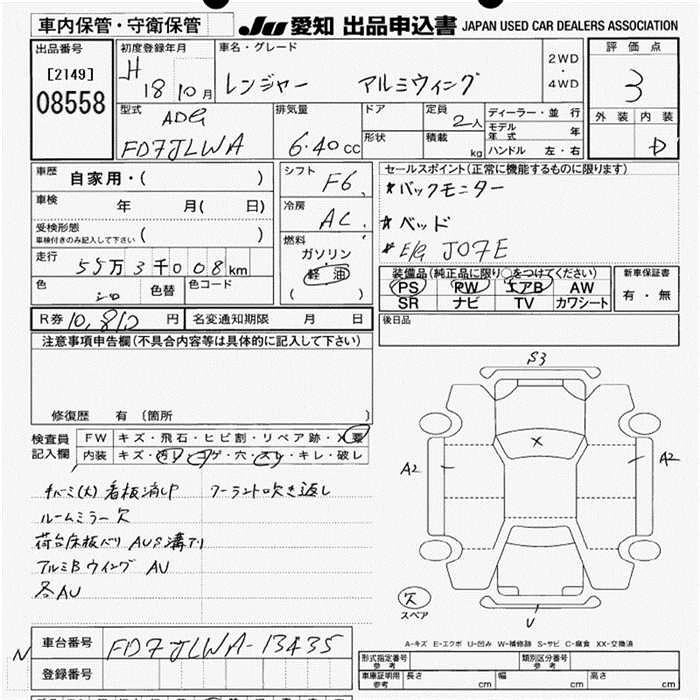 車内保管・守衛保管 JU 愛知 出品申込書 JAPAN USED CAR DEALERS ASSOCIATION
出品番号
[2149]
08558
初度登録年月
H 18 10 月
車名・グレード
レンジャー アルミウィング
2WD
・
4WD
評価点
3
外装 内装
D
型式
ADG
FD7JLWA
排気量
6.40 CC
ドア
形状
定員
2人
積載
kg
ディーラー・並行
モデル年式 年
ハンドル 左・右
車歴 自家用・( )
車検 年 月( 日)
受検形態
車検付きのみ記入して下さい ( )
走行
55万3千008km
色 シロ 色替 色コード
シフト
F6
冷房
AC
燃料
ガソリン
軽油
( )
セールスポイント(正常に機能するものに限ります)
*バックモニター
*ベッド
*E/G J07E
装備品(純正品に限り○をつけてください)
PS PW エアB AW
SR ナビ TV カワシート
新車保証書
有・無
R券 10,810 円 名変通知期限 月 日
後日品
注意事項申告欄(不具合内容等は具体的に記入して下さい)
修復歴 有 〔箇所 〕
検査員
記入欄
FW キズ・飛石・ヒビ割・リペア跡・X
内装 キズ・汚レ・コゲ・穴・スレ・キレ・破レ
キバミ(大) 看板消し クーラント吹き返し
ルームミラー欠
荷台床板バリ AUS溝アリ
アルミBウイング AU
各AU
S3
X
A2
A2
欠
スペア
U
A-キズ E-エクボ U-凹み W-補修跡 S-サビ C-腐食 XX-交換済
N
車台番号 FD7JLWA-13435
登録番号
形式指定番号
参考
類別区分番号
参考
車庫証明用
参考
長さ cm 幅 cm 高さ cm